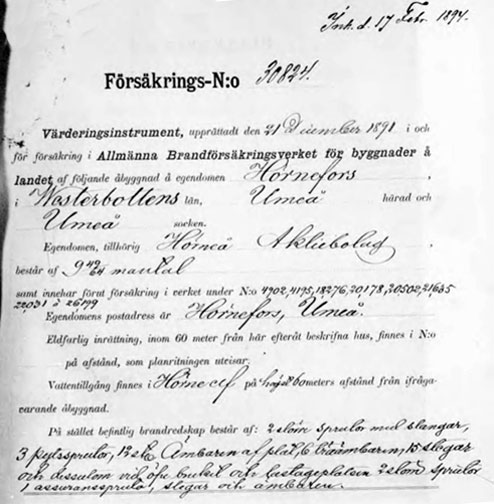 Ink. d. 17 Febr. 1894.
Försäkrings-N:o 30824.
Värderingsinstrument, upprättadt den 21 December 1891 i och
för försäkring i Allmänna Brandförsäkringsverket för byggnader å
landet af följande åbyggnad å egendomen Hörnefors
i Westerbottens län, Umeå härad och
Umeå socken.
Egendomen, tillhörig Hörneå Aktiebolag
består af 9 49/64 mantal
samt innehar förut försäkring i verket under N:o 4902, 4195, 18276, 20178, 20502, 21635
22031 å 26799
Egendomens postadress är Hörnefors, Umeå.
Eldfarlig inrättning, inom 60 meter från här efteråt beskrifna hus, finnes i N:o
på afstånd, som planritningen utvisar.
Vattentillgång finnes i Hörne elf på högst 60 meters afstånd från ifråga-
varande åbyggnad.
På stället befintlig brandredskap består af: 2 slöm sprutor med slangar,
3 sprutor, 12 st. Ämbaren af plåt, 6 träämbaren, 15 stegar
och dessutom vid öfre bruket och lastageplatsen 2 sprutor
1 assuransspruta, stegar och ämbaren.